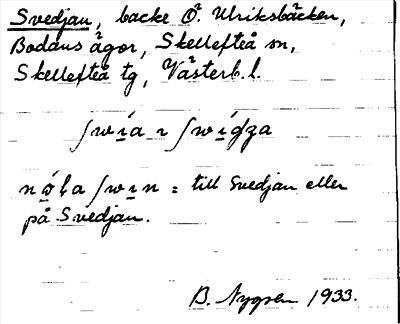 Svedjan, backe Ö. Ulriksbäcken,
Bodans ägor, Skellefteå sn,
Skellefteå tg, Västerb. l.
ʃwia ı ʃwidza
nola ʃwın = till Svedjan eller
på Svedjan.
B. Nygren 1933.